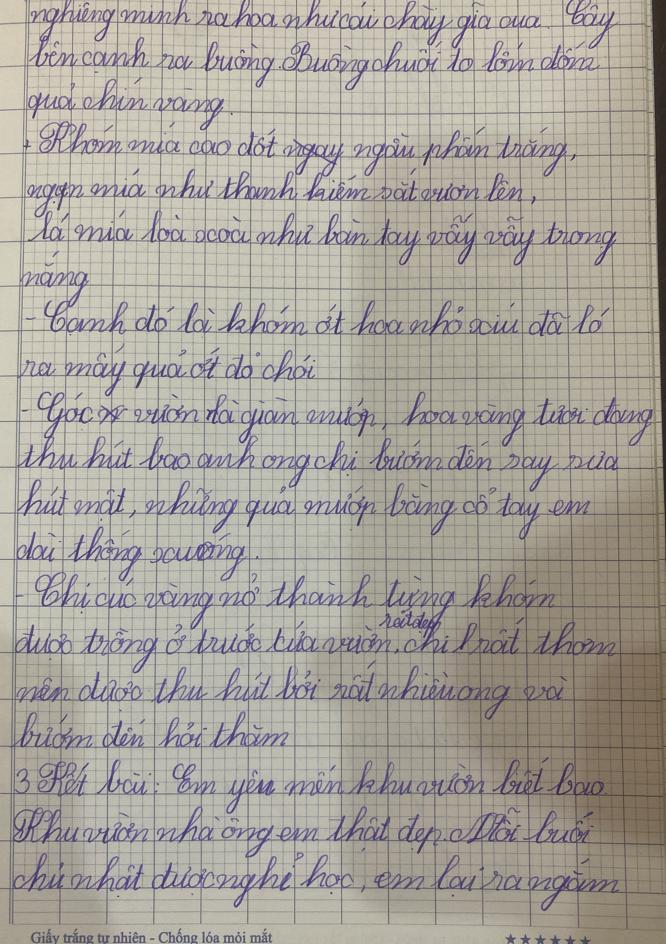 nghiêng mình ra hoa như cái chày giã cua. Cây
bên cạnh ra buồng. Buồng chuối to lốm đốm
quả chín vàng.
+ Khóm mía cao đốt ngay ngắn phấn trắng,
ngọn mía như thanh kiếm sắt vươn lên,
lá mía loà xoà như bàn tay vẫy vẫy trong
nắng
- Cạnh đó là khóm ớt hoa nhỏ xíu đã ló
ra mấy quả ớt đỏ chói
- Góc vườn là giàn mướp, hoa vàng tươi đang
thu hút bao anh ong chị bướm đến say sưa
hút mật, những quả mướp bằng cổ tay em
dài thõng xuống.
- Chị cúc vàng nở thành từng khóm
rất đẹp
được trồng ở trước cửa vườn, chị rất thơm
nên được thu hút bởi rất nhiều ong và
bướm đến hỏi thăm
3 Kết bài: Em yêu mến khu vườn biết bao.
Khu vườn nhà ông em thật đẹp. Mỗi buổi
chủ nhật được nghỉ học, em lại ra ngắm
Giấy trắng tự nhiên - Chống lóa mỏi mắt